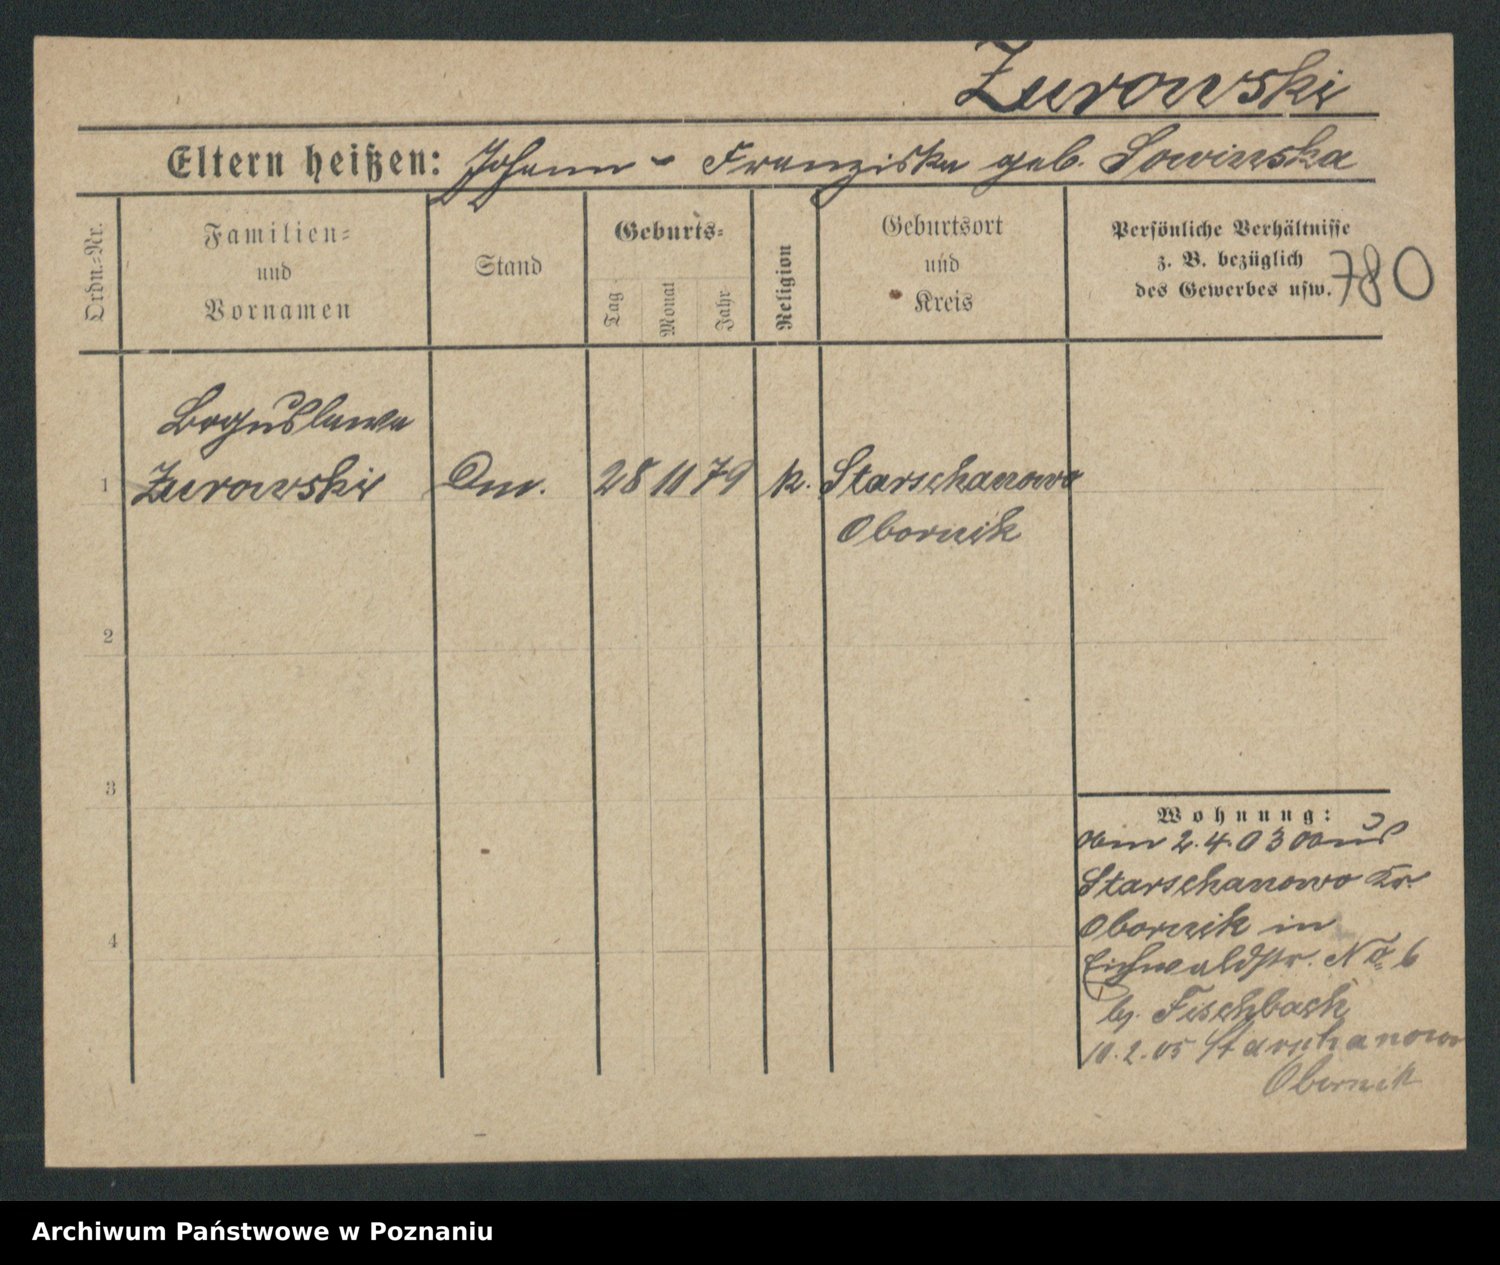 Zurowski
Eltern heißen: Johann - Franziska geb. Sowinska
Ordn.-Nr.
Familien-
und
Vornamen
Stand
Geburts-
Tag
Monat
Jahr
Religion
Geburtsort
und
Kreis
Persönliche Verhältnisse
z. B. bezüglich
des Gewerbes usw.
780
Boguslawa
1 Zurowski Dm. 28 11 79 k. Starschanowo
Obornik
2
3
4
Wohnung:
am 2.4.03 aus
Starschanowo Kr.
Obornik in
Eichwaldstr. No 6
bj. Fischbach
10.2.05 Starschanowo
Obornik
Archiwum Państwowe w Poznaniu